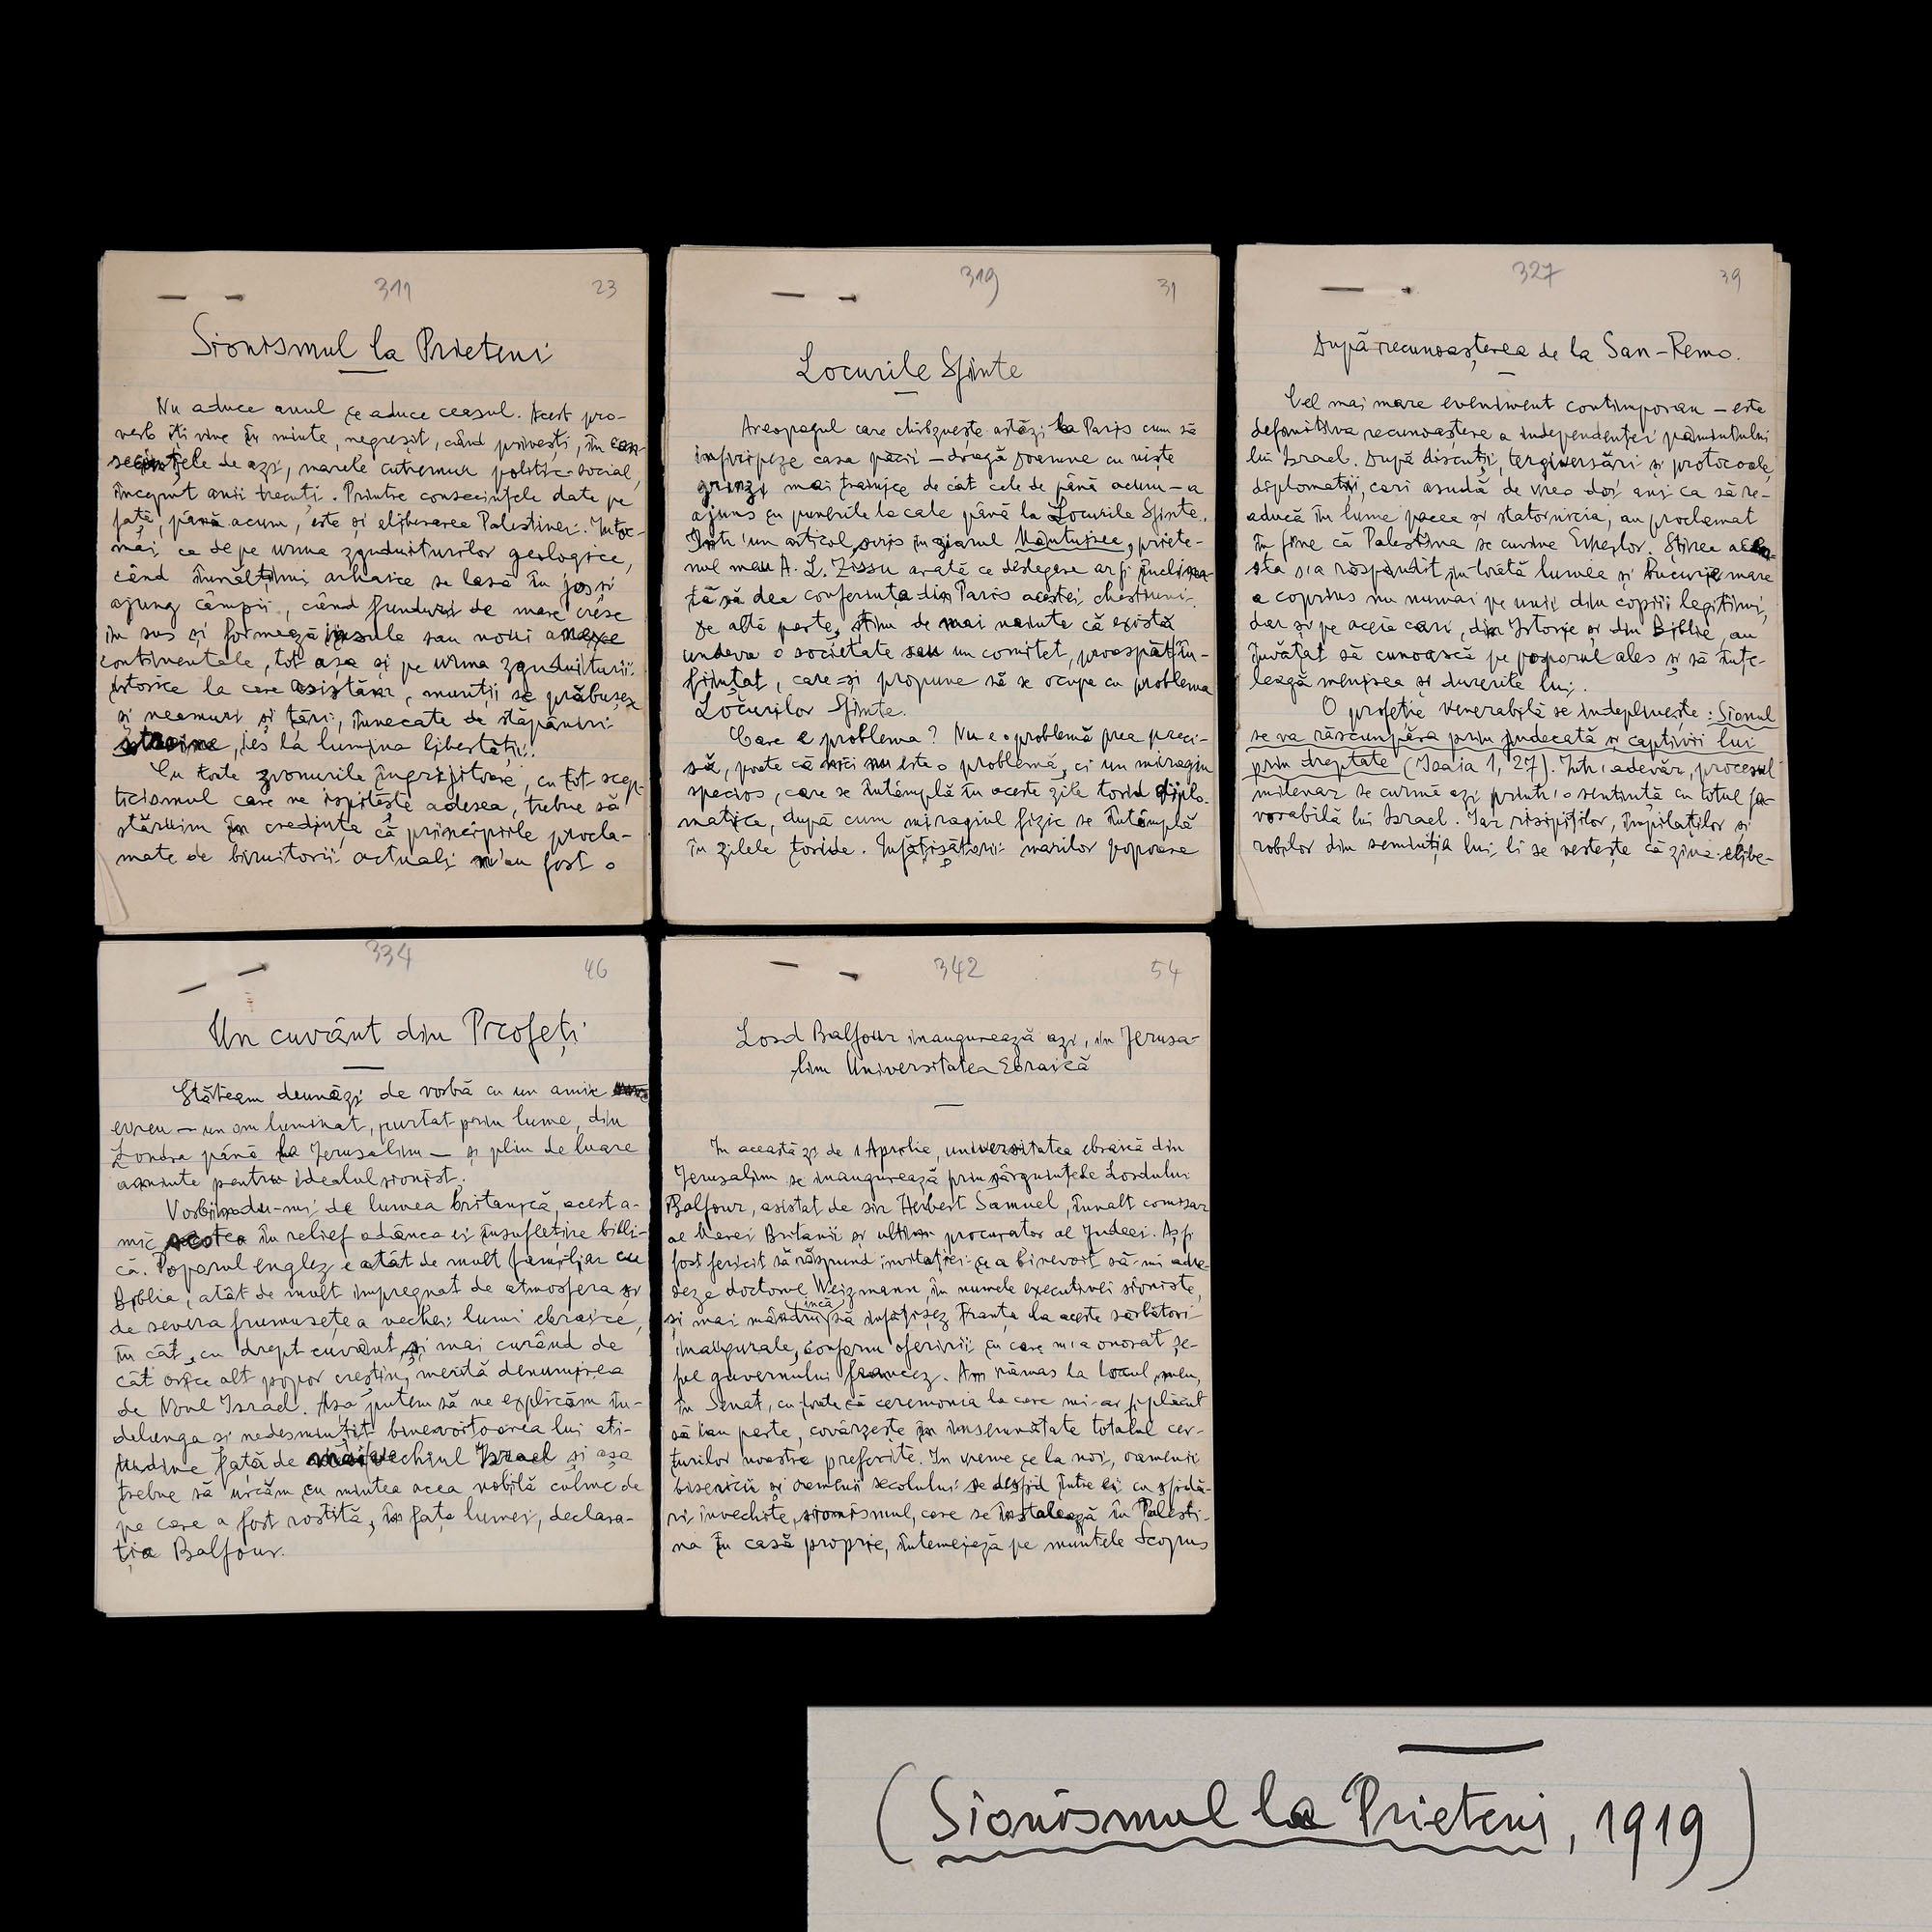 311 23
Sionismul la Prieteni
Nu aduce anul ce aduce ceasul. Acest pro-
verb iți vine în minte, negreșit, când privești, în con-
secințele de azi, marele cutremur politic-social,
început anii trecuți. Printre consecințele date pe
față, până acum, este și eliberarea Palestinei. Întoc-
mai ca de pe urma zguduiturilor geologice,
când înnălțimi arhaice se lasă în jos și
ajung câmpii, când funduri de mare cresc
în sus și formează insule sau noui anexe
continentale, tot așa și pe urma zguduiturii
istorice la care asistăm, munții se prăbușesc
și neamuri și țări, înnecate de stăpâniri
străine, ies la lumina libertății.
Cu toate zvonurile îngrijitoare, cu tot scep-
ticismul care ne ispitește adesea, trebue să
stăruim în credința că principiile procla-
mate de biruitorii actuali n'au fost o
319 31
Locurile Sfinte
Areopagul care chibzuește astăzi la Paris cum să
înfiripeze casa păcii — dragă Doamne cu niște
grinzi mai trainice de cât cele de până acum — a
ajuns cu punerile la cale până la Locurile Sfinte.
Într'un articol scris în ziarul Mântuirea, priete-
nul meu A. L. Zissu arată ce deslegare ar fi înclina-
tă să dea conferința din Paris acestei chestiuni.
De altă parte, știm de mai nainte că există
undeva o societate sau un comitet, proaspăt în-
ființat, care-și propune să se ocupe cu problema
Locurilor Sfinte.
Care e problema? Nu e o problemă prea preci-
să, poate că nici nu este o problemă, ci un miragiu
specios, care se întâmplă în aceste zile torid diplo-
matice, după cum miragiul fizic se întâmplă
în zilele toride. Înfățișătorii marilor popoare
327 39
După recunoașterea de la San-Remo.
Cel mai mare eveniment contimporan — este
definitiva recunoaștere a independenței pământului
lui Israel. După discuții, tergiversări și protocoale,
diplomații, cari asudă de vreo doi ani ca să re-
aducă în lume pacea și statornicia, au proclamat
în fine că Palestina se cuvine Evreilor. Știrea acea-
sta s'a răspândit în toată lumea și bucurie mare
a coprins nu numai pe unii din copiii legitimi,
dar și pe aceia cari, din Istorie și din Biblie, au
învățat să cunoască pe poporul ales și să înțe-
leagă menirea și durerile lui.
O profeție venerabilă se îndeplinește: Sionul
se va răscumpăra prin judecată și captivii lui
prin dreptate (Isaia 1, 27). Într'adevăr, procesul
milenar se curmă azi printr'o sentință cu totul fa-
vorabilă lui Israel. Iar risipiților, împilaților și
robilor din seminția lui li se vestește că ziua elibe-
334 46
Un cuvânt din Profeți
Stăteam deunăzi de vorbă cu un amic
evreu — un om luminat, purtat prin lume, din
Londra până la Jerusalim — și plin de luare
aminte pentru idealul sionist.
Vorbindu-mi de lumea britanică, acest a-
mic scotea în relief adânca ei însuflețire bibli-
că. Poporul englez e atât de mult familiar cu
Biblia, atât de mult impregnat de atmosfera și
de severa frumusețe a vechei lumi ebraice,
în cât, cu drept cuvânt, și mai curând de
cât orice alt popor creștin, merită denumirea
de Noul Israel. Așa putem să ne explicăm în-
delunga și nedesmințit binevoitoarea lui ati-
tudine față de vechiul Israel și așa
trebue să urcăm cu mintea acea nobilă culme de
pe care a fost rostită, în fața lumei, declara-
ția Balfour.
342 54
Lord Balfour inaugurează azi, în Jerusa-
lim Universitatea Ebraică
În această zi de 1 Aprilie, universitatea ebraică din
Jerusalim se inaugurează prin sârguințele Lordului
Balfour, asistat de sir Herbert Samuel, înnalt comisar
al Marei Britanii și ultim procurator al Judeei. Aș fi
fost fericit să răspund invitației ce a binevoit să-mi adre-
seze doctorul Weizmann, în numele executivei sioniste,
și mai mândru încă să înfățișez Franța la aceste sărbători
inaugurale, conform oferirii cu care m'a onorat șe-
ful guvernului francez. Am rămas la locul meu,
în Senat, cu toate că ceremonia la care mi-ar fi plăcut
să iau parte, covârșește în însemnătate totalul cer-
turilor noastre preferite. În vreme ce la noi, oamenii
bisericii și oamenii secolului se desfid între ei cu sfidă-
ri învechite, sionismul, care se instalează în Palesti-
na în casă proprie, întemeiază pe muntele Scopus
(Sionismul la Prieteni, 1919)